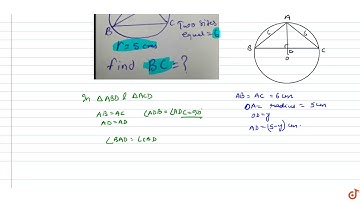 B
C
Two sides
equal = 6
r = 5 cm
find BC = ?
A
6
6
B
D
C
O
In △ABD & △ACD
AB = AC
∠ADB = ∠ADC = 90°
AD = AD
∠BAD = ∠CAD
AB = AC = 6 cm
OA = radius = 5 cm
OD = y
AD = (5-y) cm.